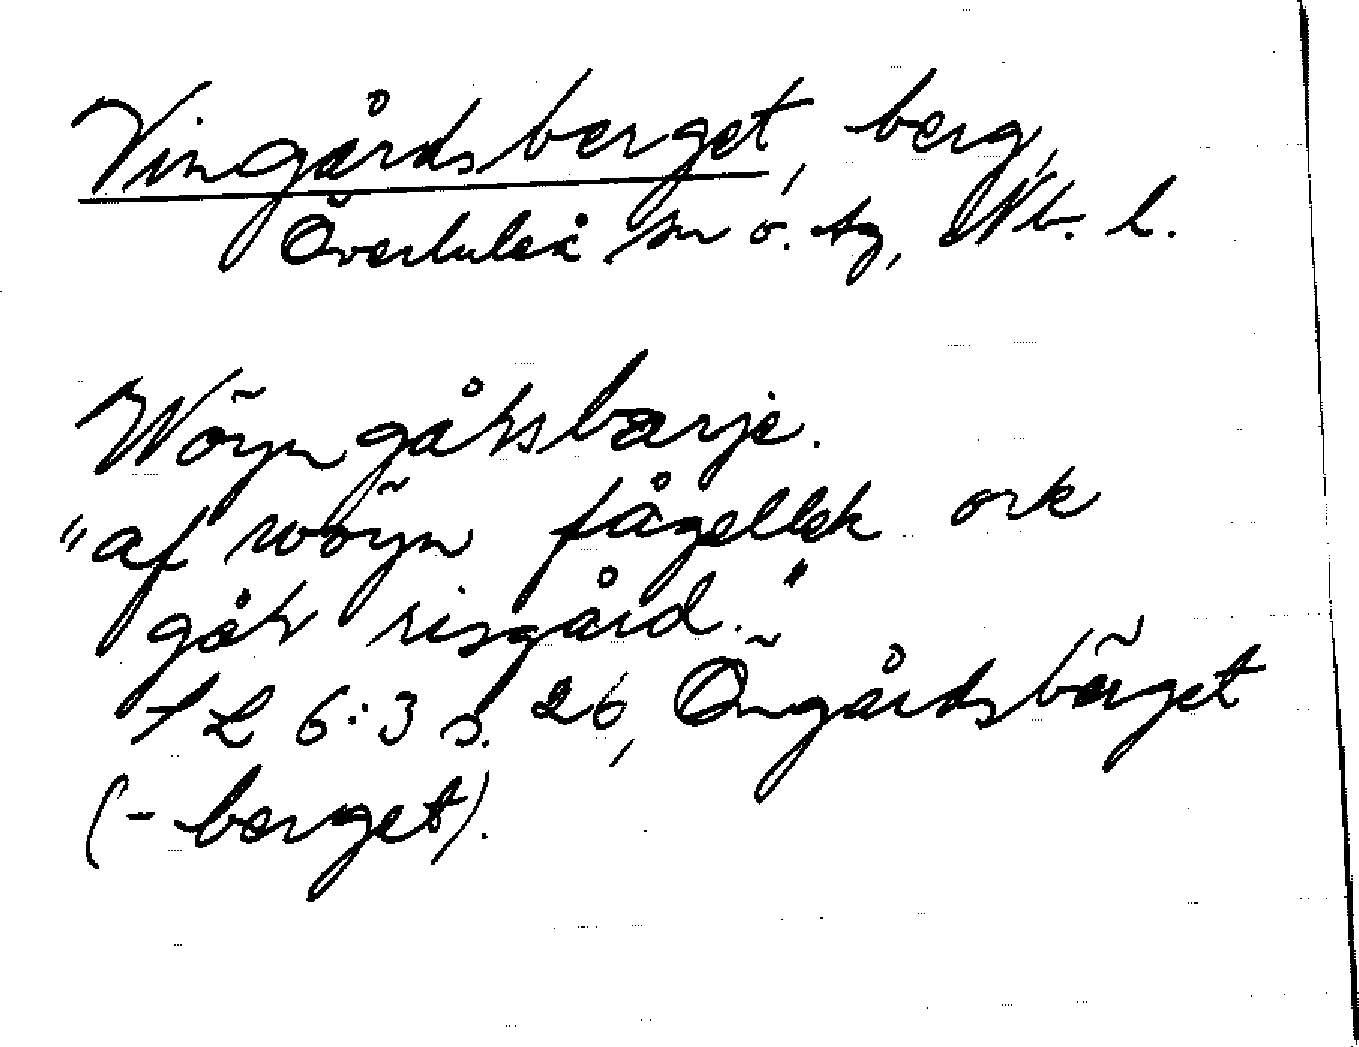 Vingårdsberget, berg,
Överluleå sn o. tg, Nb. l.
Wöyngåhsbærje.
"af wöyn fågellek ock
gåh risgård."
SL 6:3 s. 26, Öngårdsbärget
(-berget).